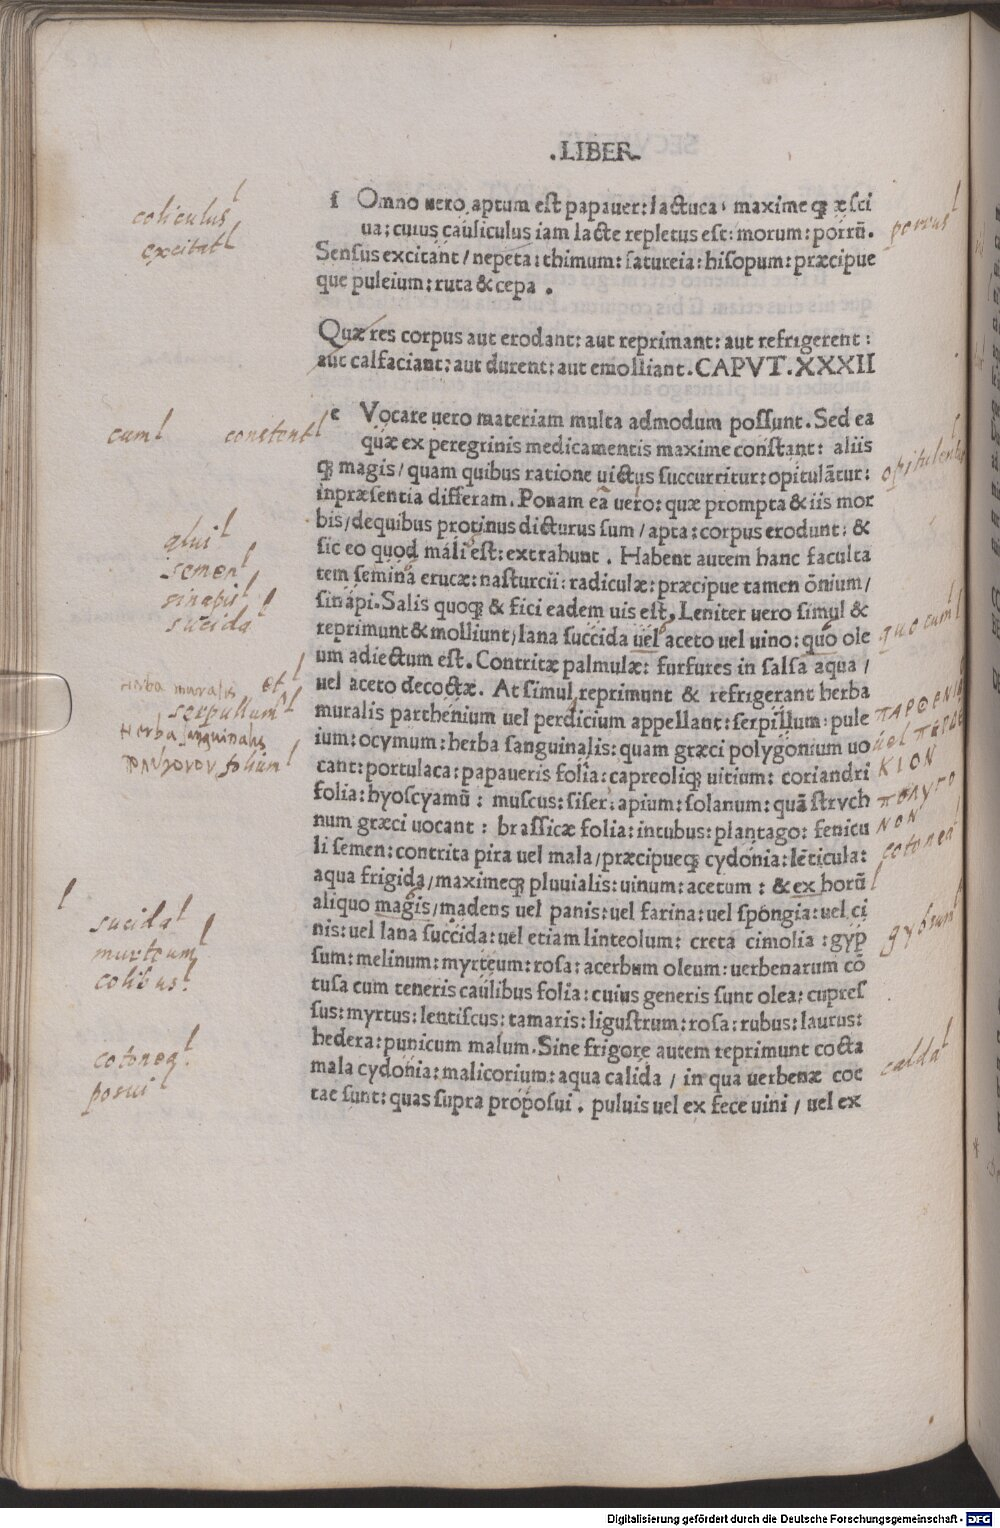 .LIBER.
coliculus
excitat
porrus
f Omno uero aptum est papauer: lactuca: maxime q; æsti
ua: cuius cauliculus iam lacte repletus est: morum: porrū.
Sensus excitant / nepeta: thimum: satureia: hisopum: præcipue
que puleium: ruta & cepa .
Quæ res corpus aut erodant: aut reprimant: aut refrigerent:
aut calfaciant: aut durent: aut emolliant. CAPVT. XXXII
cum
constent
opitulentur
e Vocare uero materiam multa admodum possunt. Sed ea
quæ ex peregrinis medicamentis maxime constant: aliis
q; magis / quam quibus ratione uictus succurritur: opitulātur:
inpræsentia differam. Ponam eā uero: quæ prompta & iis mor
bis / dequibus protinus dicturus sum / apta: corpus erodunt: &
sic eo quod mali est: extrahunt . Habent autem hanc faculta
tem semina erucæ: nasturcii: radiculæ: præcipue tamen ōnium /
sinapi. Salis quoq; & fici eadem uis est. Leniter uero simul &
reprimunt & molliunt / lana succida uel aceto uel uino: quo ole
um adiectum est. Contritæ palmulæ: furfures in salsa aqua /
uel aceto decoctæ. At simul reprimunt & refrigerant herba
muralis parthenium uel perdicium appellant: serpillum: pule
ium: ocymum: herba sanguinalis: quam græci polygonium uo
cant: portulaca: papaueris folia: capreoliq; uitium: coriandri
folia: hyoscyamū: muscus: siser: apium: solanum: quā strych
num græci uocant: brassicæ folia: intubus: plantago: fenicu
li semen: contrita pira uel mala / præcipueq; cydonia: lēticula:
aqua frigida / maximeq; pluuialis: uinum: acetum: & ex horū
aliquo magis / madens uel panis: uel farina: uel spongia: uel ci
nis: uel lana succida: uel etiam linteolum: creta cimolia: gyp
sum: melinum: myrteum: rosa: acerbum oleum: uerbenarum cō
tusa cum teneris caulibus folia: cuius generis sunt olea: cupres
sus: myrtus: lentiscus: tamaris: ligustrum: rosa: rubus: laurus:
hedera: punicum malum. Sine frigore autem reprimunt cocta
mala cydonia: malicorium: aqua calida / in qua uerbenæ coc
tae sunt: quas supra proposui . puluis uel ex fece uini / uel ex
qlui
semen
sinapis
sucida
Herba muralis et
serpullum
Herba sanguinalis
πολύγονον folium
sucida
murteum
colibus
cotonea
posui
quo cum
ΠΑΡΘΕΝΙΟ
uel ΠΕΡΔΙ
ΚΙΟΝ
ΠΟΛΥΓΟ
ΝΟΝ
cotonea
gybsum
calda
Digitalisierung gefördert durch die Deutsche Forschungsgemeinschaft - DFG